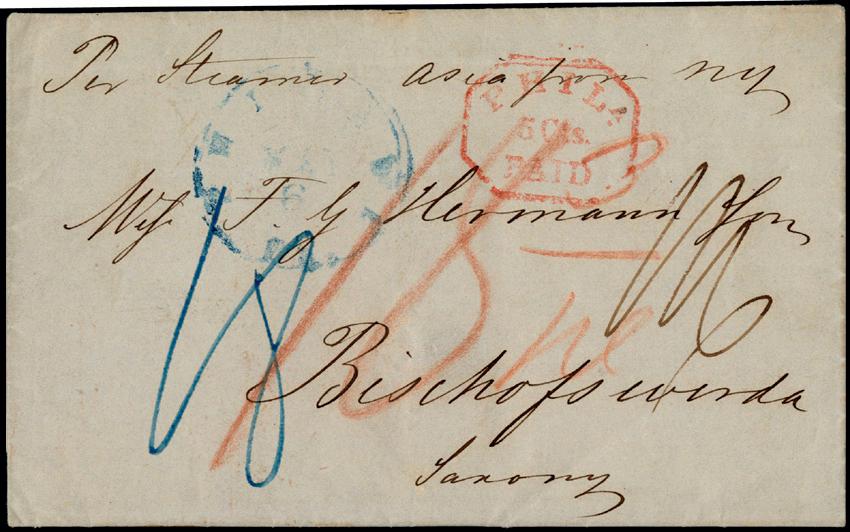 Per Steamer Asia from NY
PHILA
5 Cts.
PAID
MAY
6
PA.
Mess F. G Hermann & Son
18
Bischofswerda
Saxony